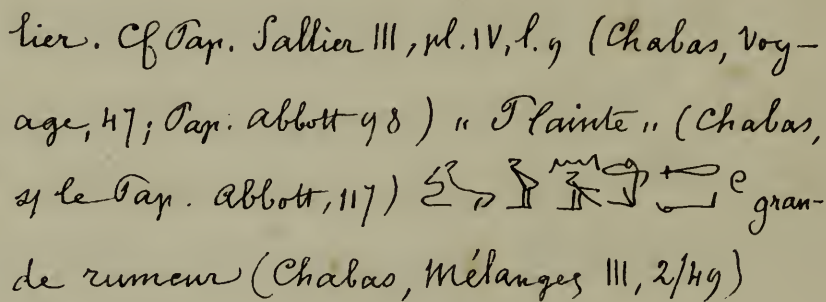 lier. Cf Pap. Sallier III, pl. IV, l. 9 (Chabas, Voy-
age, 47; Pap. Abbott 98) „ Plainte „ (Chabas,
le Pap. Abbott, 117) gran-
de rumeur (Chabas, Mélanges III, 2/49)